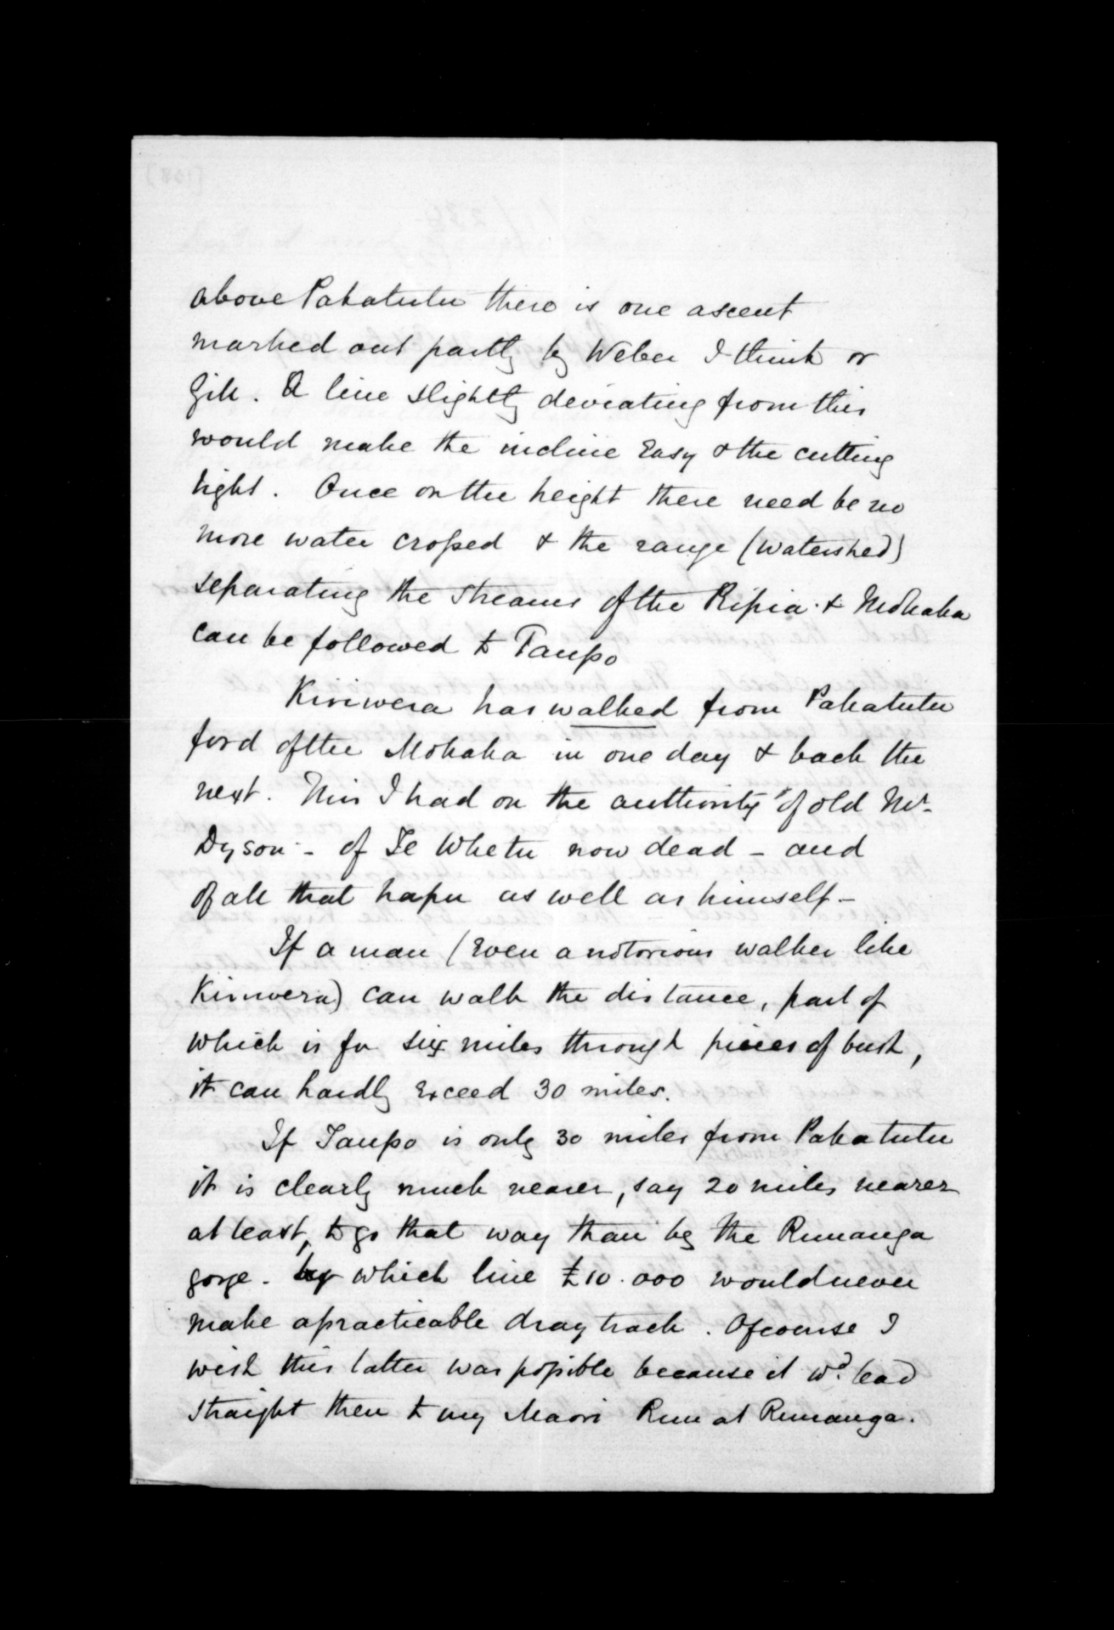 above Pakatutu there is one ascent
marked out partly by Weber I think or
Gill. A line slightly deviating from this
would make the incline easy & the cutting
light. Once on the height there need be no
more water crossed & the range (watershed)
separating the streams of the Ripia & Mohaka
can be followed to Taupo
Kiriwera has walked from Pakatutu
ford of the Mohaka in one day & back the
next. This I had on the authority of old Mr.
Dyson - of Te Whetu now dead - and
of all that hapu as well as himself -
If a man (even a notorious walker like
Kiriwera) can walk the distance, part of
which is for six miles through pieces of bush,
it can hardly exceed 30 miles.
If Taupo is only 30 miles from Pakatutu
it is clearly much nearer, say 20 miles nearer
at least, to go that way than by the Runanga
gorge. by which line £10.000 would never
make a practicable dray track. Of course I
wish this latter was possible because it wd. lead
straight then to my Maori Run at Runanga.